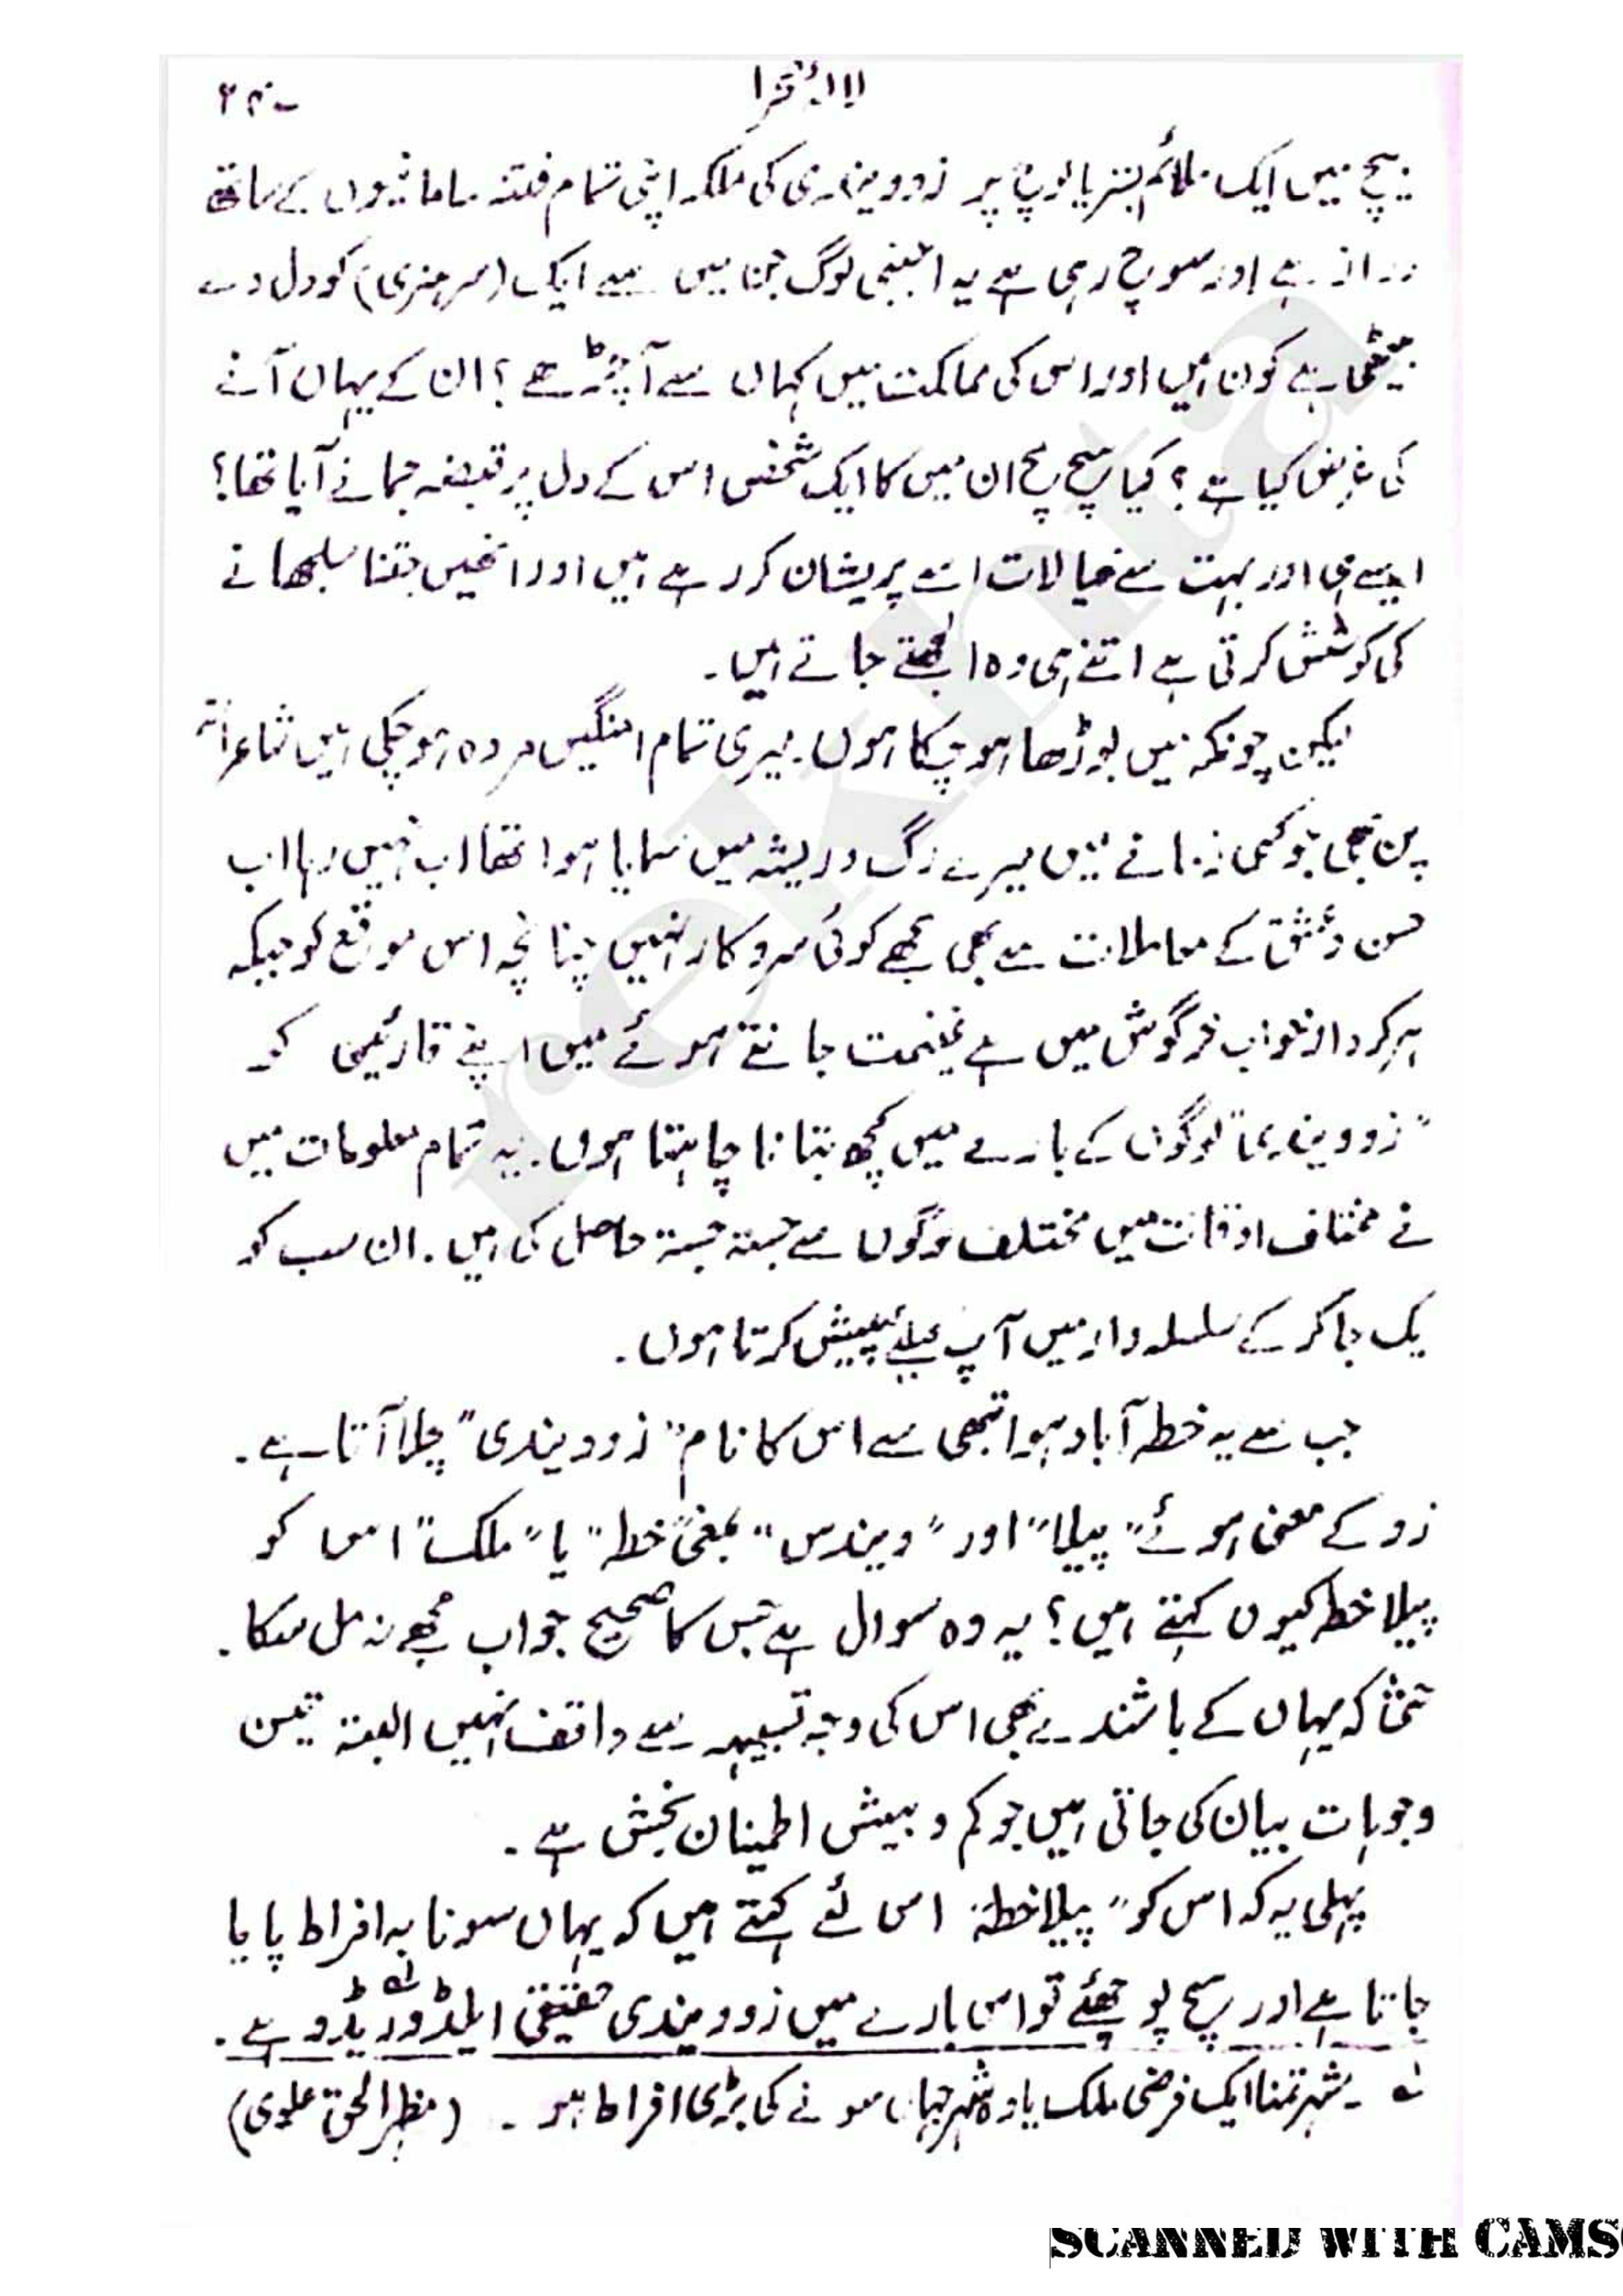 بیچ میں ایک ملائم بستر یا کوچ پر زوویندی کی ملکہ اپنی تمام فتنہ سامانیوں کے ساتھ
دراز ہے اور سوچ رہی ہے یہ اجنبی لوگ جن میں سے ایک (سر ہنری) کو دل دے
بیٹھی ہے کون ہیں اور اس کی مملکت میں کہاں سے آ چڑھے ؟ ان کے یہاں آنے
کی غرض کیا ہے ؟ کیا سچ مچ ان میں کا ایک شخص اس کے دل پر قبضہ جمانے آیا تھا؟
ایسے ہی اور بہت سے خیالات اسے پریشان کر رہے ہیں اور انھیں جتنا سلجھانے
کی کوشش کرتی ہے اتنے ہی وہ الجھتے جاتے ہیں۔
لیکن چونکہ میں بوڑھا ہو چکا ہوں۔ میری تمام امنگیں مردہ ہو چکی ہیں شاعرانہ
پن بھی جو کسی زمانے میں میرے رگ و ریشہ میں سمایا ہوا تھا اب نہیں رہا اب
حسن و عشق کے معاملات سے بھی مجھے کوئی سروکار نہیں چنانچہ اس موقع کو جبکہ
ہر کردار خواب خرگوش میں ہے غنیمت جانتے ہوئے میں اپنے قارئین کو
"زوویندی" لوگوں کے بارے میں کچھ بتانا چاہتا ہوں۔ یہ تمام معلومات میں
نے مختلف اوقات میں مختلف لوگوں سے جستہ جستہ حاصل کی ہیں۔ ان سب کو
یک جا کر کے سلسلہ وار میں آپ کیلئے پیش کرتا ہوں۔
جب سے یہ خطہ آباد ہوا تبھی سے اس کا نام "زوویندی" چلا آتا ہے۔
زو کے معنی ہوئے "پیلا" اور "ویندس" بمعنی "خطہ" یا "ملک" اس کو
پیلا خطہ کیوں کہتے ہیں؟ یہ وہ سوال ہے جس کا صحیح جواب مجھے نہ مل سکا۔
حتیٰ کہ یہاں کے باشندے بھی اس کی وجہ تسمیہ سے واقف نہیں البتہ تین
وجوہات بیان کی جاتی ہیں جو کم و بیش اطمینان بخش ہے۔
پہلی یہ کہ اس کو "پیلا خطہ" اس لئے کہتے ہیں کہ یہاں سونا بہ افراط پایا
جاتا ہے اور سچ پوچھئے تو اس بارے میں زوویندی حقیقی ایلڈوریڈو لے ہے۔
لے ۔ شہر تمنا ایک فرضی ملک یا وہ شہر جہاں سونے کی بڑی افراط ہو ۔ (مظہر الحق علوی)
SCANNED WITH CAMS
rekhta